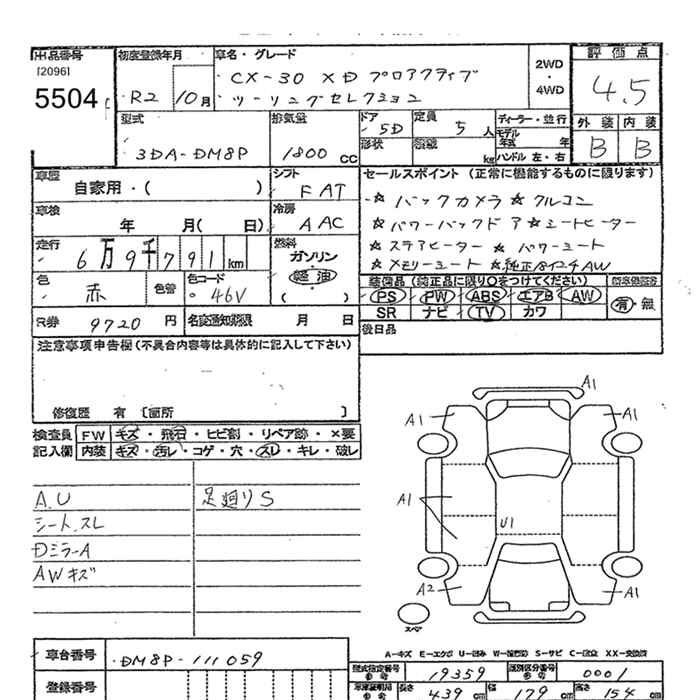 出品番号 初度登録年月 車名・グレード 2WD・4WD 評価点
[2096]
5504 R2 10月 CX-30 XD プロアクティブ 4.5
ツーリングセレクション
型式 排気量 ドア 5D 定員 5人 ディーラー・並行 外装 内装
3DA-DM8P 1800 CC 形状 積載 kg モデル年式 年 B B
ハンドル 左・右
車歴 自家用・( ) シフト FAT セールスポイント (正常に機能するものに限ります)
車検 年 月( 日) 冷房 AAC ☆バックカメラ ☆クルコン
☆パワーバックドア ☆シートヒーター
走行 6万9千791 km 燃料 ガソリン ☆ステアヒーター ☆パワーシート
軽油 ☆メモリーシート ☆純正18インチAW
( )
色 赤 色替 色コード 46V 装備品 (純正品に限り○をつけてください)
PS PW ABS エアB AW 有・無
SR ナビ TV カワ
R券 9720 円 名変通知期限 月 日 後日品
注意事項申告欄 (不具合内容等は具体的に記入して下さい)
修復歴 有 [箇所 ]
検査員 FW キズ・飛石・ヒビ割・リペア跡・×要
記入欄 内装 キズ・汚レ・コゲ・穴・スレ・キレ・破レ
A1
A1 A1
A.U 足廻りS A1
シート.スレ U1
DミラーA
AWキズ A2 A1
スペア
A-キズ E-エクボ U-凹ミ W-補修跡 S-サビ C-腐食 XX-交換済
車台番号 DM8P-111059 型式指定番号 参考 19359 類別区分番号 参考 0001
登録番号 車庫証明用 参考 長さ 439 cm 幅 179 cm 高さ 154 cm